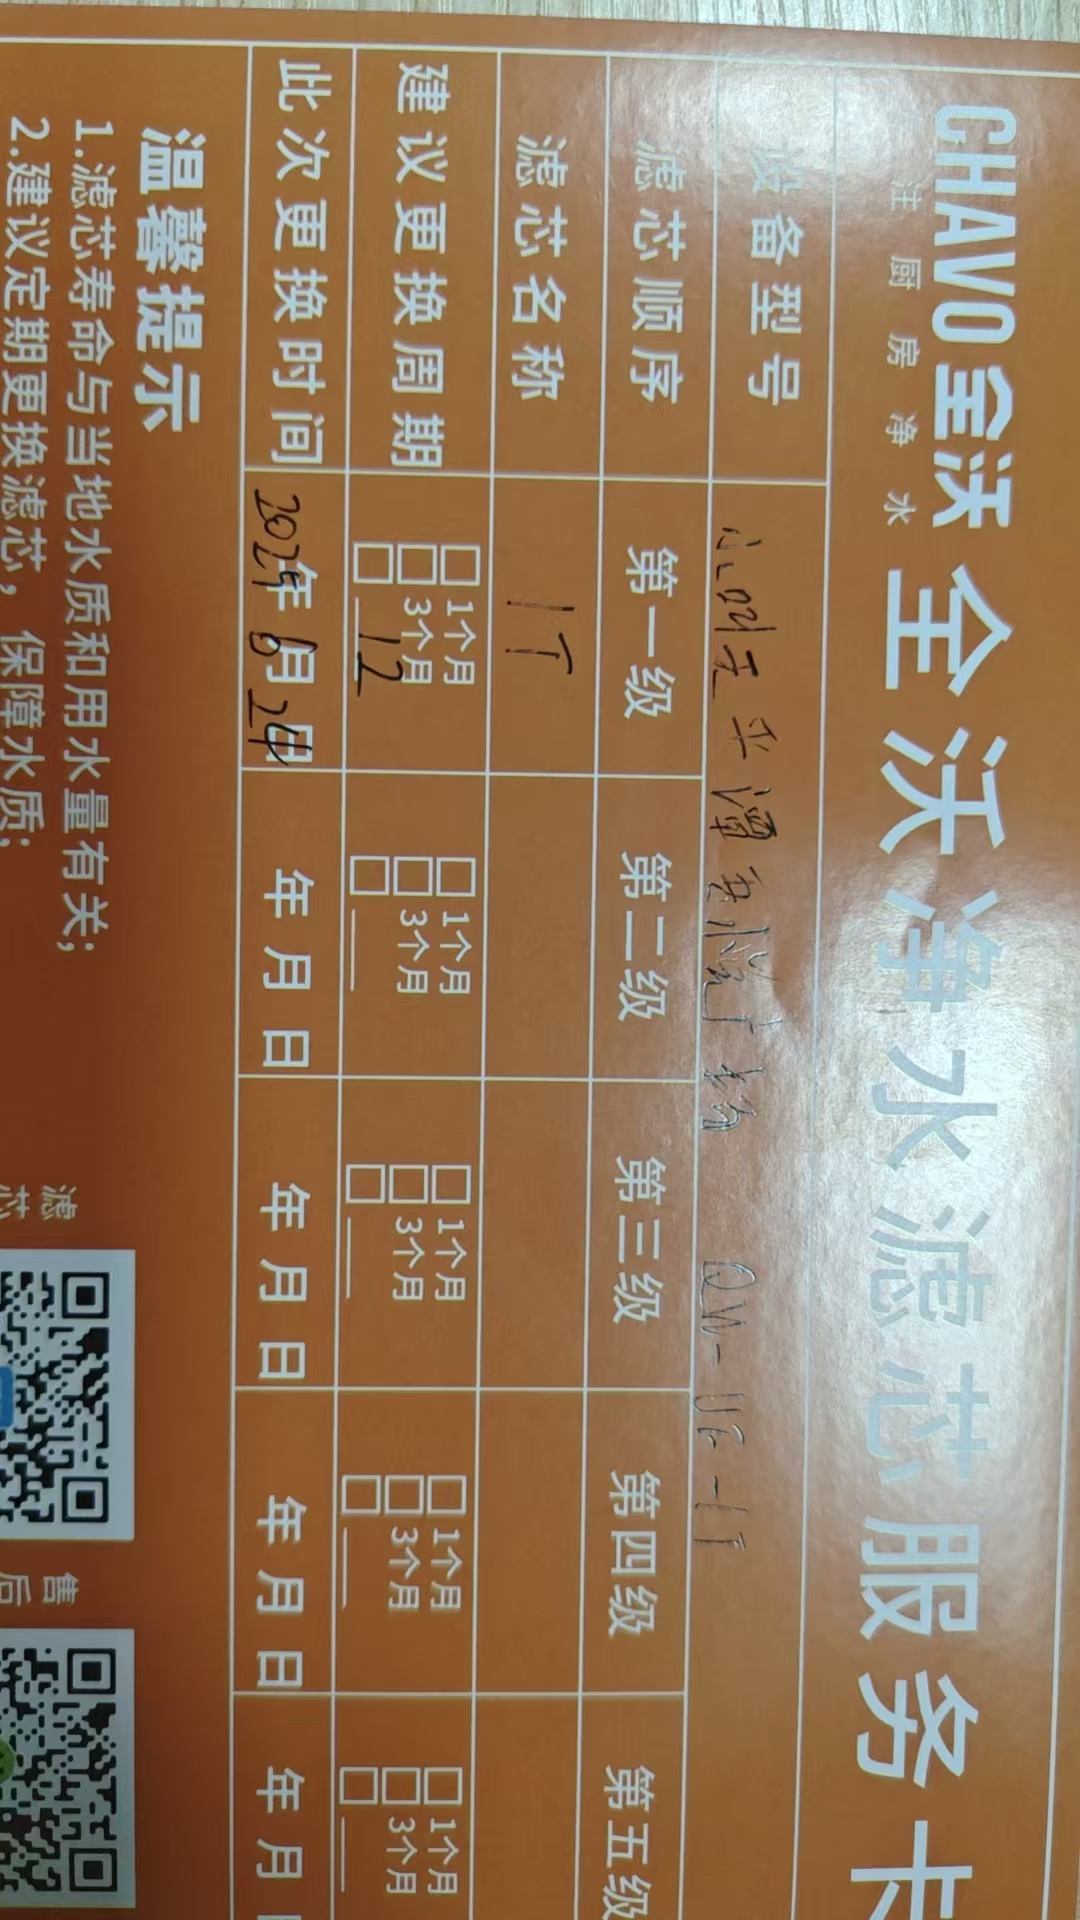 CHAVO全沃 全沃净水滤芯服务卡
注 厨 房 净 水
设备型号 QW-UF-1T
滤芯顺序 第一级 第二级 第三级 第四级 第五级
滤芯名称 1T
建议更换周期 □1个月 □1个月 □1个月 □1个月 □1个月
□3个月 □3个月 □3个月 □3个月 □3个月
□12 □ □ □ □
此次更换时间 2024年6月24日 年 月 日 年 月 日 年 月 日 年 月
温馨提示
1.滤芯寿命与当地水质和用水量有关;
2.建议定期更换滤芯,保障水质;
滤芯
售后